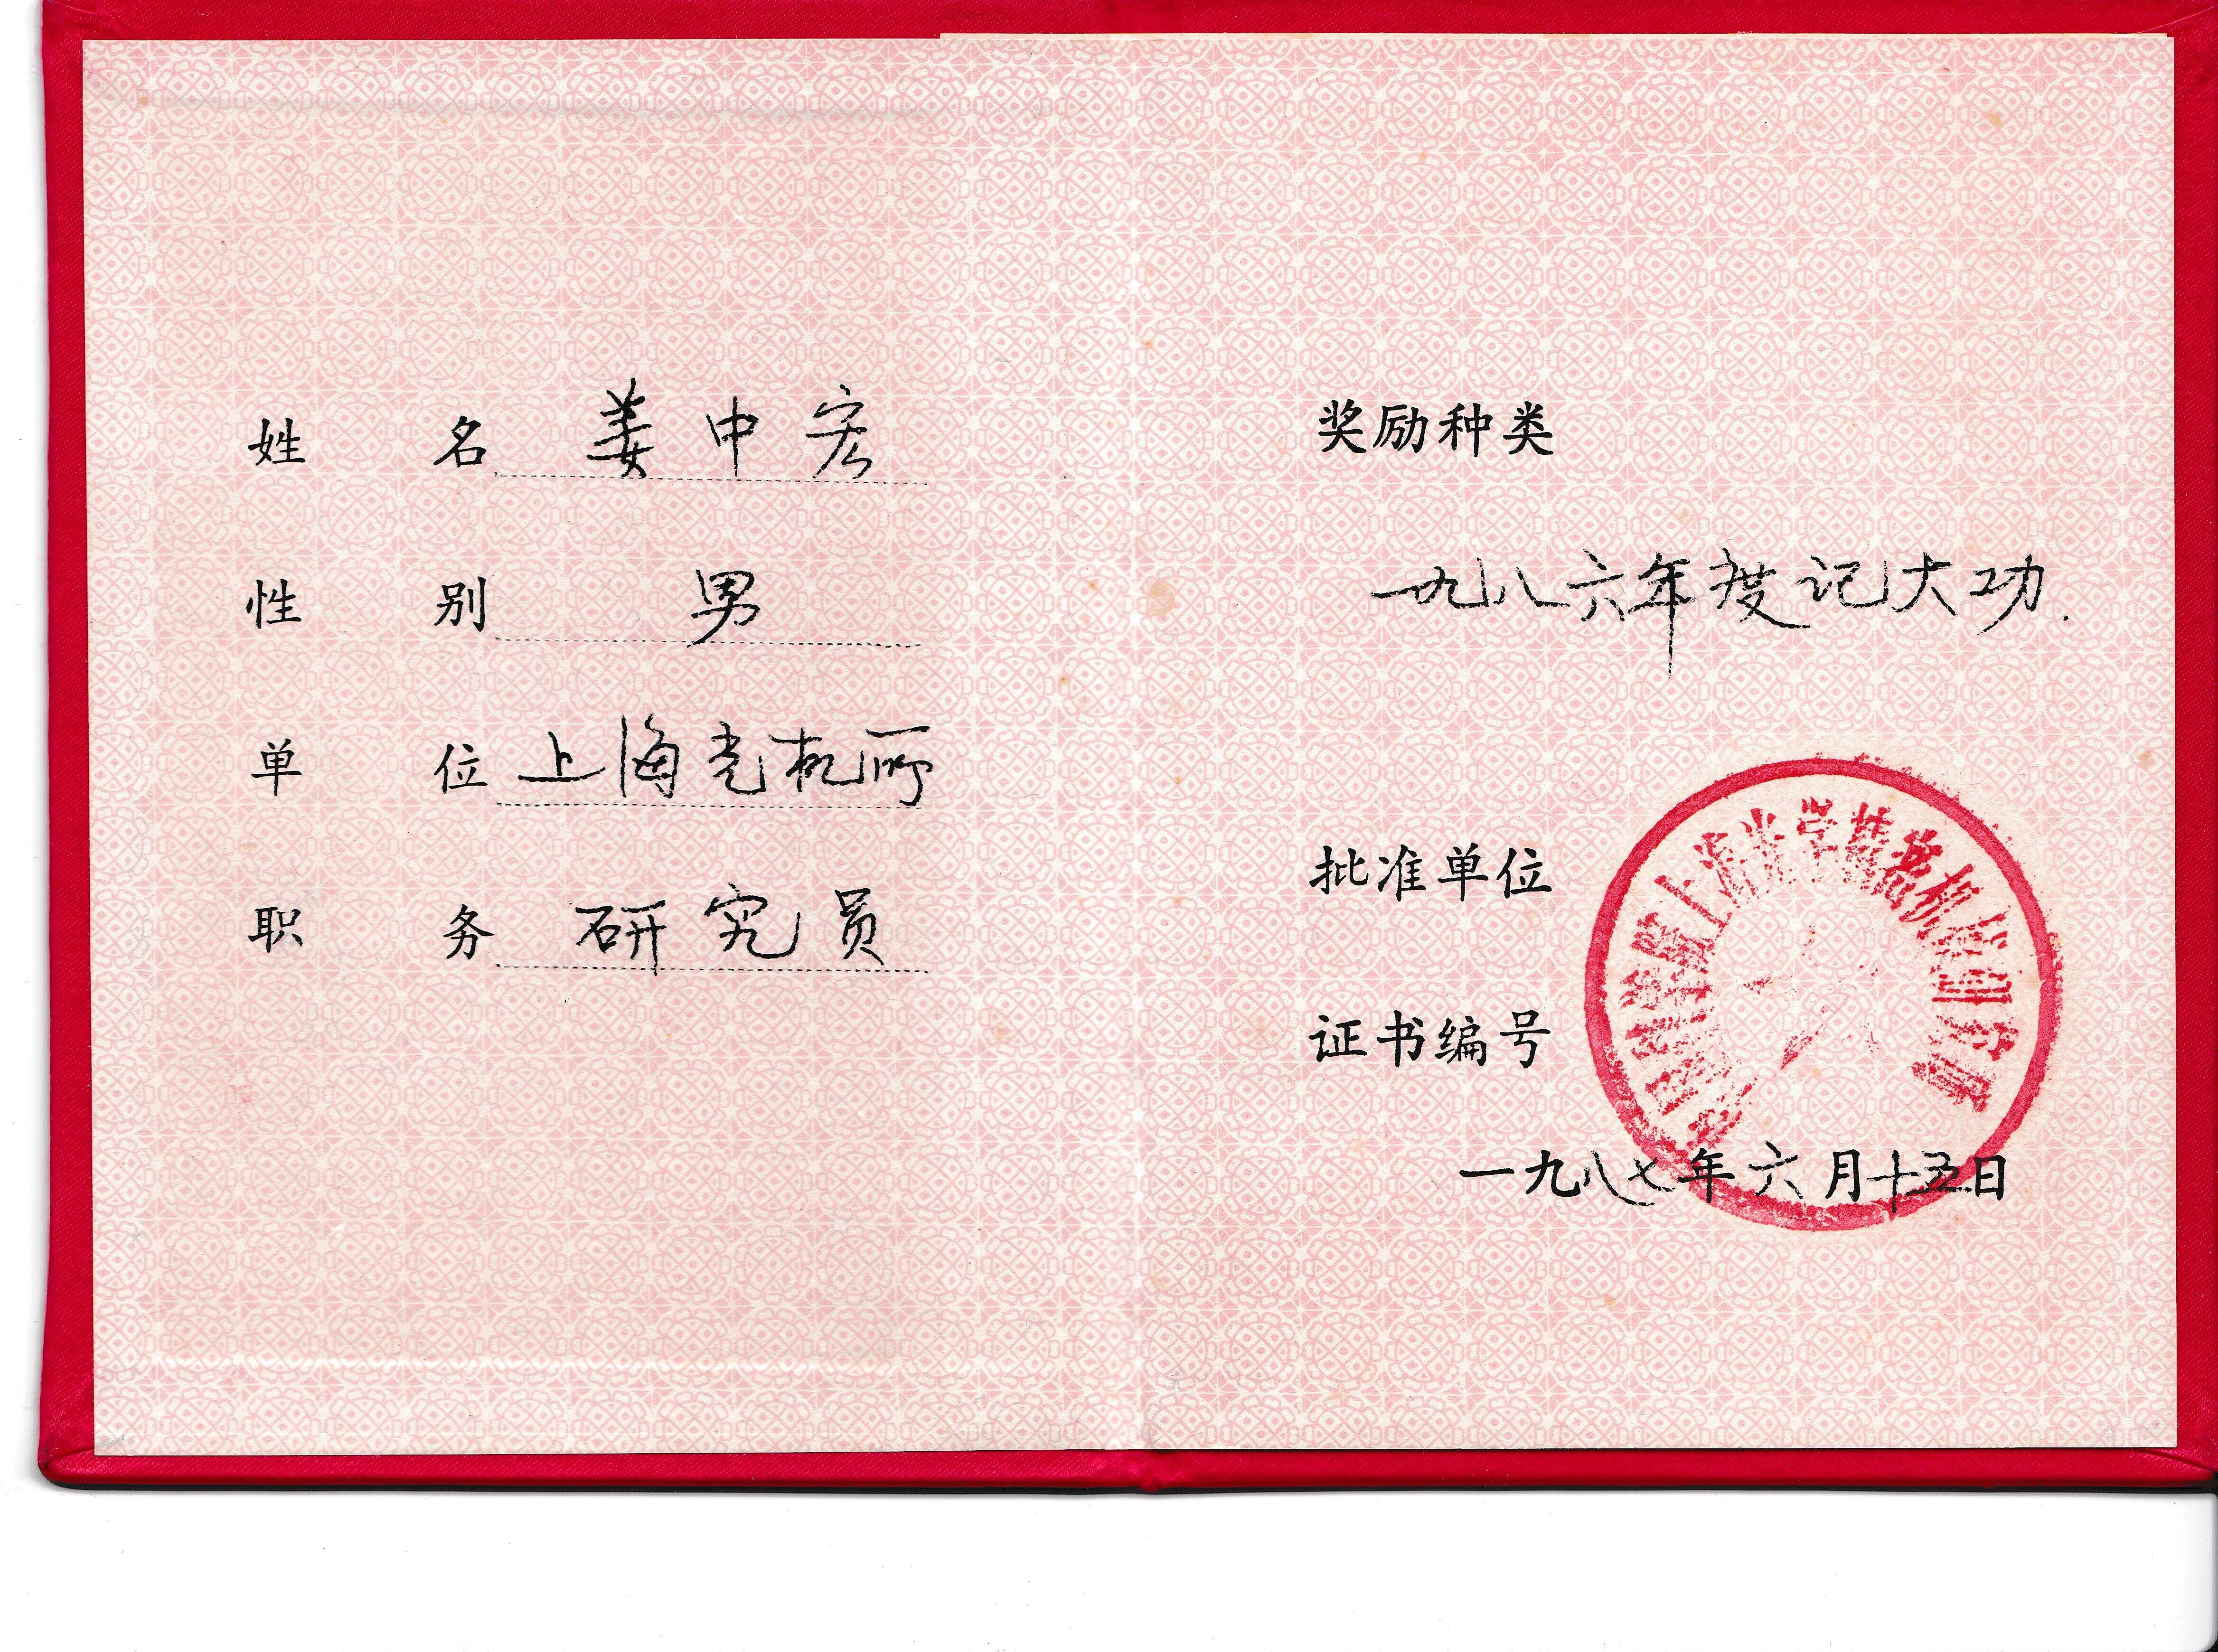 姓名 姜中宏
性别 男
单位 上海光机所
职务 研究员
奖励种类
一九八六年度记大功.
批准单位
证书编号
上海光学精密机
一九八七年六月十五日